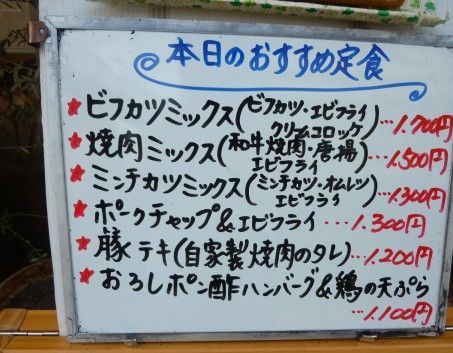 本日のおすすめ定食
★ビフカツミックス(ビフカツ・エビフライ
クリームコロッケ…1.700円
★焼肉ミックス(和牛焼肉・唐揚
エビフライ…1.500円
★ミンチカツミックス(ミンチカツ・オムレツ
エビフライ…1.300円
★ポークチャップ&エビフライ…1.300円
★豚テキ(自家製焼肉のタレ)…1.200円
★おろしポン酢ハンバーグ&鶏の天ぷら
…1.100円